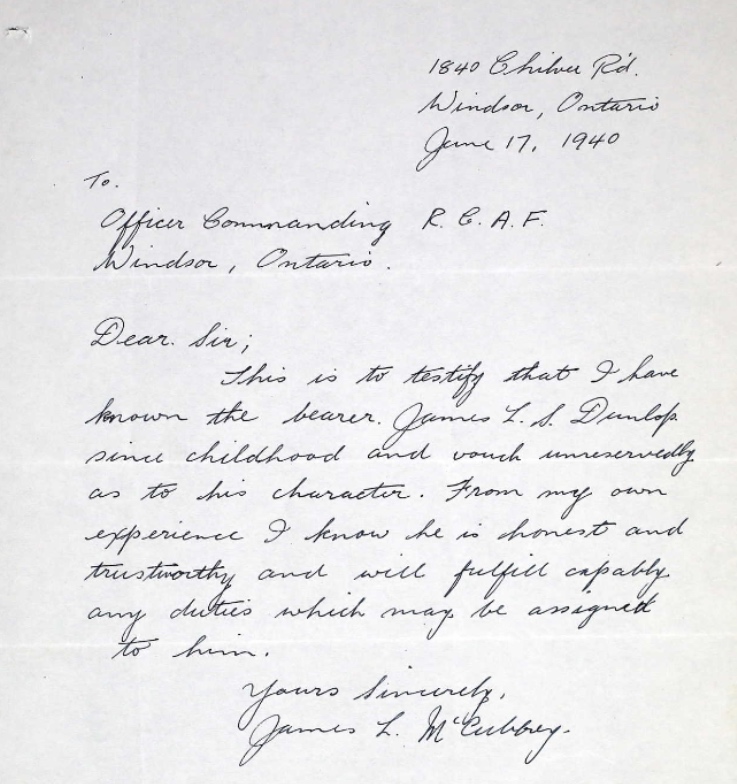 1840 Chilver Rd.
Windsor, Ontario
June 17, 1940
To.
Officer Commanding R. C. A. F.
Windsor, Ontario.
Dear. Sir;
This is to testify that I have
known the bearer. James L. S. Dunlop
since childhood and vouch unreservedly
as to his character. From my own
experience I know he is honest and
trustworthy and will fulfill capably
any duties which may be assigned
to him.
Yours Sincerely,
James L. McCubbrey.